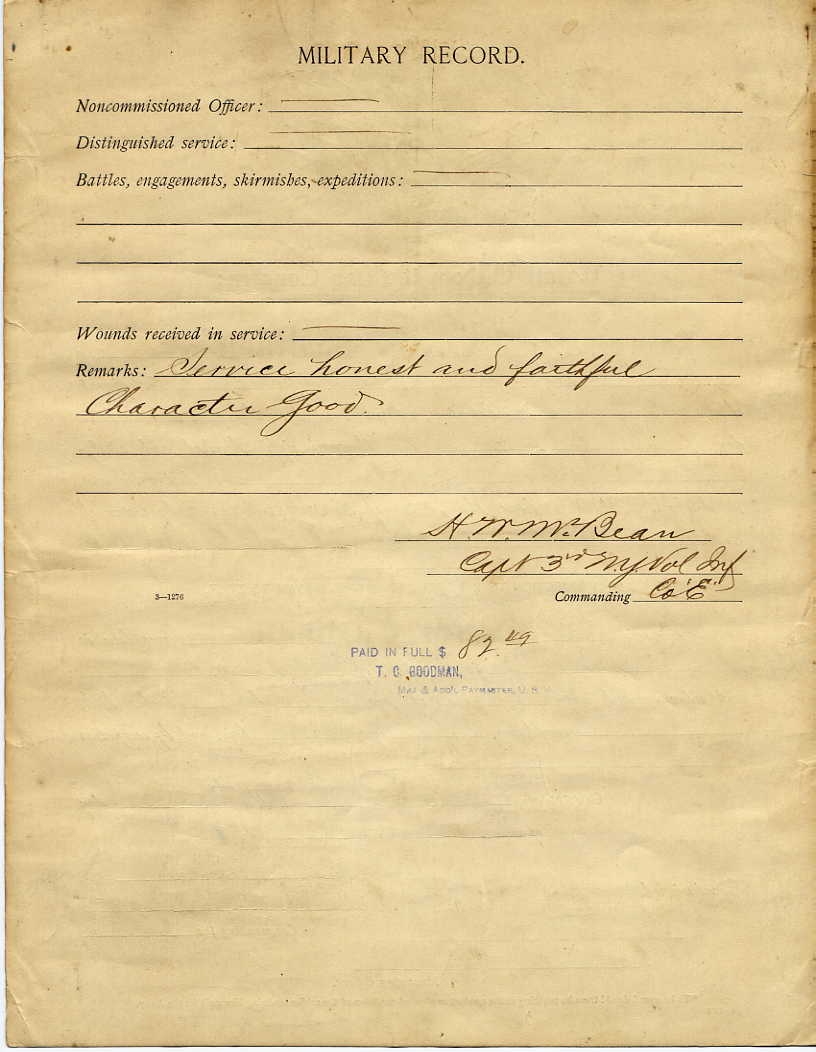 MILITARY RECORD.
Noncommissioned Officer:
Distinguished service:
Battles, engagements, skirmishes, expeditions:
Wounds received in service:
Remarks: Service honest and faithful
Character Good.
H. W. McBean
Capt 3rd N.J. Vol Inf
3—1276
Commanding Co "E"
PAID IN FULL $ 82.49
T. C. GOODMAN,
MAJ & ADD'L PAYMASTER, U. S. V.